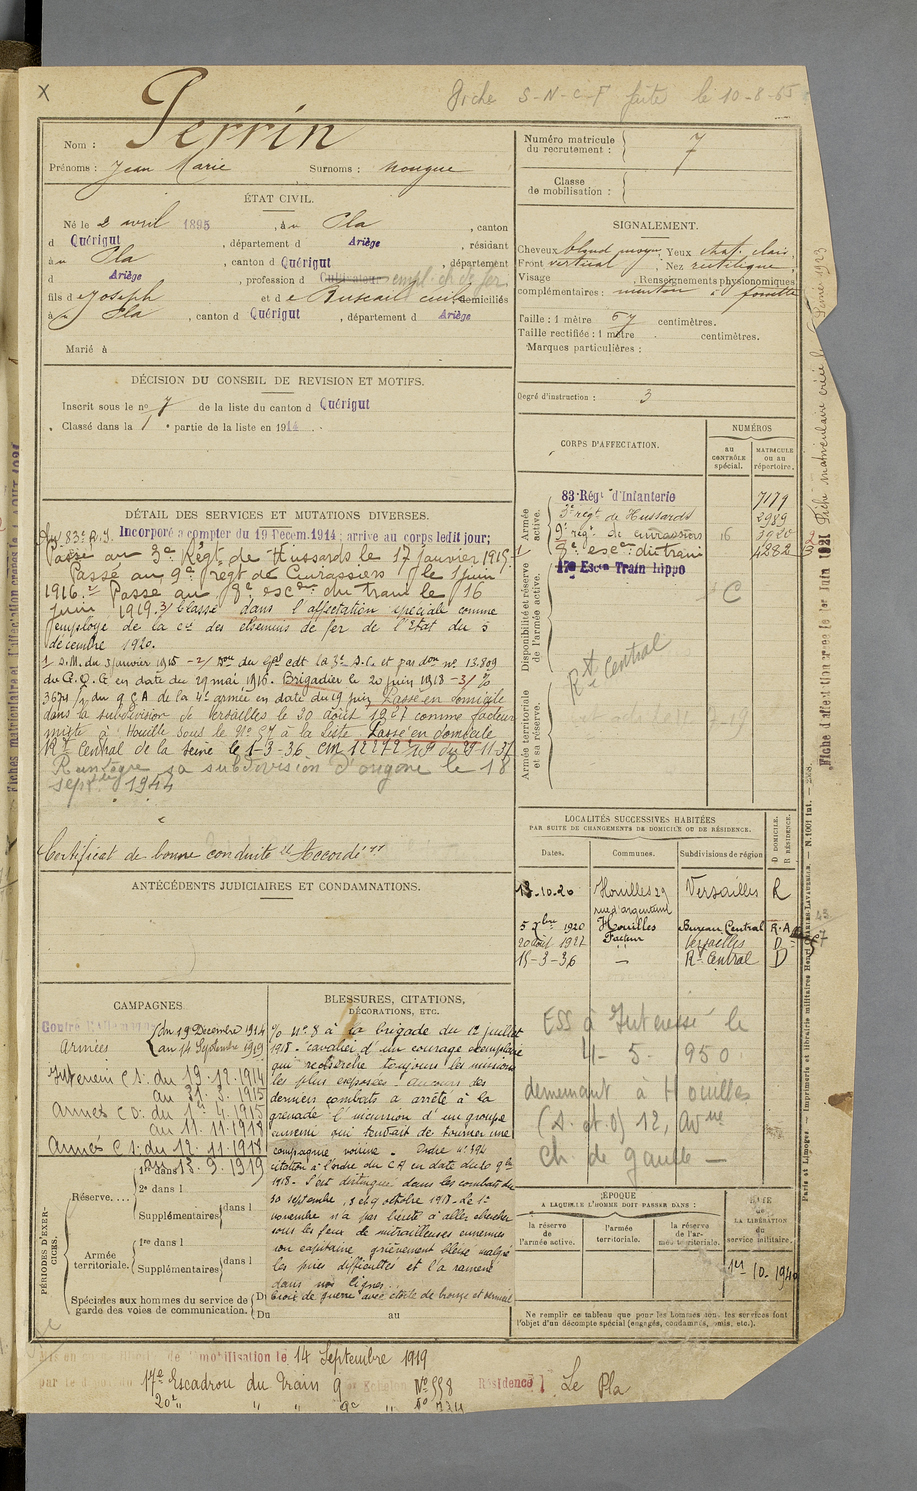 X
Fiche S-N-C-F faite le 10-8-55
Nom : Perrin
Prénoms : Jean Marie Surnoms : nougue
ÉTAT CIVIL.
Né le 2 avril 1895, à u Pla, canton
d Quérigut, département d Ariège, résidant
à u Pla, canton d Quérigut, département
d Ariège, profession d Cultivateur empl. ch. de fer
fils de Joseph et de domiciliés
à u Pla, canton d Quérigut, département d Ariège
Marié à
DÉCISION DU CONSEIL DE REVISION ET MOTIFS.
Inscrit sous le no 7 de la liste du canton d Quérigut
Classé dans la 1 e partie de la liste en 1914
DÉTAIL DES SERVICES ET MUTATIONS DIVERSES.
Au 83e R.I. Incorporé à compter du 19 Décem. 1914; arrivé au corps ledit jour;
Passé au 3e Régt de Hussards le 17 janvier 1915.
Passé au 9e regt de Cuirassiers le 1 juin
1916. Passé au 8e escon du train le 16
juin 1919. 3/ Classé dans l'affectation spéciale comme
employé de la cie des chemins de fer de l'Etat du 5
décembre 1920.
du G.Q.G en date du 29 mai 1916. Brigadier le 20 juin 1918 - 3/
du Q G A. de la 4e armée en date du 19 juin Passé en domicile
dans la subdivision de Versailles le 20 août 1927 comme facteur
mixte à Houille sous le No 57 à la liste Passé en domicile
Rt Central de la Seine le 1-3-36
Réintègre sa subdivision d'origine le 18
septbre 1944
Certificat de bonne conduite "Accordé"
ANTÉCÉDENTS JUDICIAIRES ET CONDAMNATIONS.
CAMPAGNES
Contre l'Allemagne
Armées du 19 Décembre 1914
au 14 Septembre 1919
Intérieur C S: du 19.12.1914
au 31.3.1915
Armées C D: du 1er 4.1915
au 11.11.1918
Armées C S: du 12.11.1918
au 13.9.1919
BLESSURES, CITATIONS,
DÉCORATIONS, ETC.
No 8 à la brigade du 1er juillet
1918 - cavalier d'un courage exemplaire
qui recherche toujours les missions
les plus exposées - au cours des
derniers combats a arrêté à la
grenade l'incursion d'un groupe
ennemi qui tentait de tourner une
compagnie voisine - Ordre No 394
citation à l'ordre du CA en date du 20 9bre
1918 - S'est distingué dans les combats du
30 septembre, 8 et 9 octobre 1918 - Le 1er
novembre n'a pas hésité à aller chercher
sous les feux de mitrailleuses ennemies
son capitaine grièvement blessé malgré
les pires difficultés et l'a ramené
dans nos lignes.
Croix de guerre avec étoile de bronze et vermeil
PÉRIODES D'EXERCICES.
Réserve....
1re dans l
2e dans l
Supplémentaires dans l
Armée territoriale.
1re dans l
Supplémentaires dans l
Spéciales aux hommes du service de garde des voies de communication.
Du
Du au
Numéro matricule du recrutement : 7
Classe de mobilisation :
SIGNALEMENT.
Cheveux blond moyen Yeux chat. clair
Front vertical, Nez rectiligne,
Visage , Renseignements physionomiques
complémentaires : menton à fossette
Taille : 1 mètre 67 centimètres.
Taille rectifiée : 1 mètre centimètres.
Marques particulières :
Degré d'instruction : 3
CORPS D'AFFECTATION.
NUMÉROS
AU CONTRÔLE spécial.
MATRICULE OU AU répertoire.
Armée active.
83e Régt d'Infanterie 7179
3e regt de Hussards 2989
9e regt de cuirassiers 16 3920
8e escon du train 4282
17e Escon Train hippo
Disponibilité et réserve de l'armée active.
C
Rt Central
Armée territoriale et sa réserve.
LOCALITÉS SUCCESSIVES HABITÉES
PAR SUITE DE CHANGEMENTS DE DOMICILE OU DE RÉSIDENCE.
Dates. Communes. Subdivisions de région D DOMICILE. R RÉSIDENCE.
13-10-20 Houilles 29 rue d'argenteuil Versailles R
5 Xbre 1920 Houilles Bureau Central R.A
20 août 1927 Facteur Versailles D
15-3-36 — Rt Central D
ESS à Intéressé le
4-5-1950
demeurant à Houilles
(S.et.O) 12, Avnue
Ch. de gaulle —
ÉPOQUE
A LAQUELLE L'HOMME DOIT PASSER DANS :
la réserve de l'armée active.
l'armée territoriale.
la réserve de l'armée territoriale.
DATE de LA LIBÉRATION du service militaire.
1er 10. 1940
Ne remplir ce tableau que pour les hommes dont les services font
l'objet d'un décompte spécial (engagés, condamnés, omis, etc.).
mobilisation le 14 Septembre 1919
17e Escadron du Train 9e Echelon No 558 Résidence Le Pla
20e " " " 9e "
Paris et Limoges. — Imprimerie et librairie militaires Henri CHARLES-LAVAUZELLE. — N. 1001 int.
Fiche d'affectation créée le 1er Juin 1921
Fiche matriculaire créée le